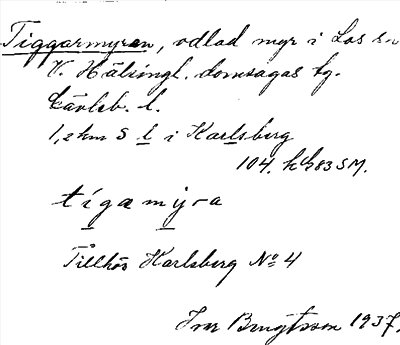 Tiggarmyran, odlad myr i Los sn
V. Hälsingl. domsagas tg.
Gävleb. l.
1,2 km S l i Karlsberg
104. 83 SM.
tígamỳra
Tillhör Karlsberg No 4
Bengtsson 1937.